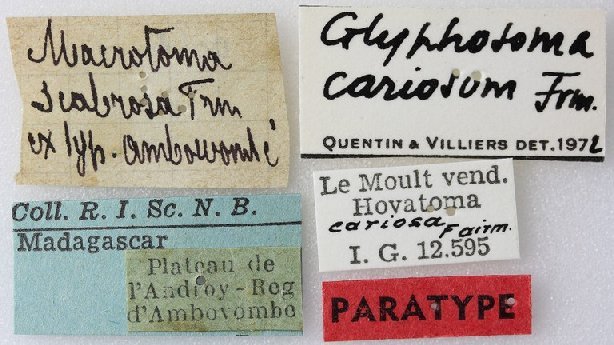 Macrotoma
scabrosa Frm
ex typ. ambovombé
Glyphosoma
cariosum Frm.
QUENTIN & VILLIERS DET. 1972
Coll. R. I. Sc. N. B.
Madagascar
Plateau de
l'Androy - Reg
d'Ambovombe
Le Moult vend.
Hovatoma
cariosa Fairm.
I. G. 12.595
PARATYPE